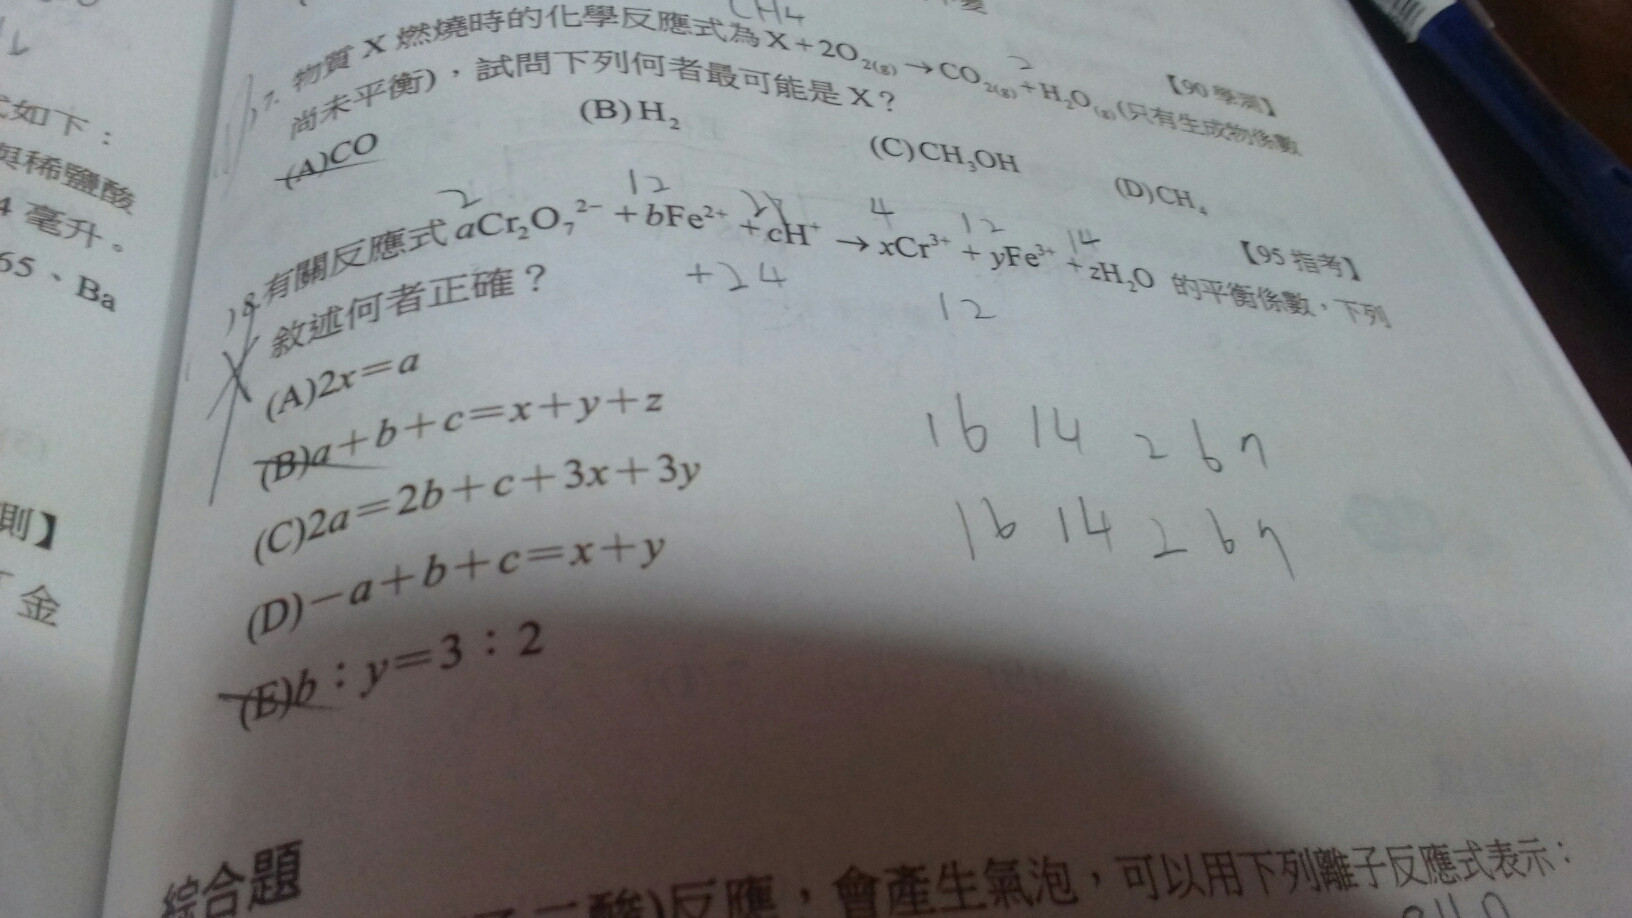 CH4
7. 物質 X 燃燒時的化學反應式為 X + 2O2(g) → CO2(g) + H2O(g) (只有生成物係數
2
尚未平衡)，試問下列何者最可能是 X？
【90 學測】
(A)CO (B)H2 (C)CH3OH (D)CH4
【95 指考】
2 12 4 12 14
8. 有關反應式 aCr2O7^2− + bFe^2+ + cH^+ → xCr^3+ + yFe^3+ + zH2O 的平衡係數，下列
+24 12
敘述何者正確？
(A)2x＝a
(B)a＋b＋c＝x＋y＋z
(C)2a＝2b＋c＋3x＋3y
(D)－a＋b＋c＝x＋y
(E)b：y＝3：2
16 14 2 6 7
16 14 2 6 7
綜合題
二酸)反應，會產生氣泡，可以用下列離子反應式表示：
式如下：
與稀鹽酸
4 毫升。
65、Ba
則】
金